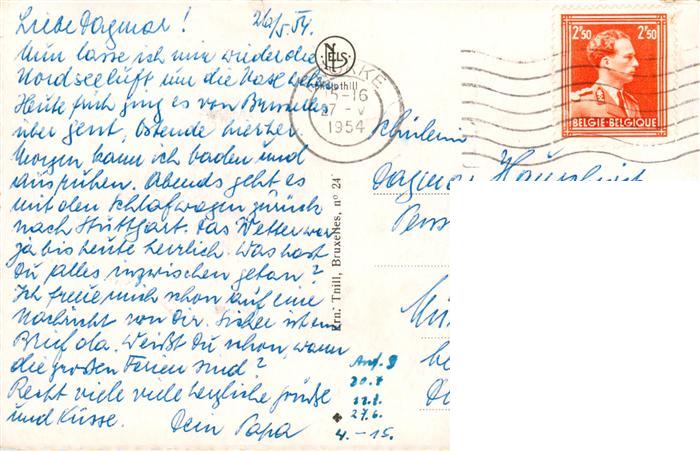 Liebe Dagmar! 26/5 54.
Nun lasse ich mir wieder die
Nordseeluft um die Nase wehen.
Heute früh ging es von Brüssel
über Gent, Ostende hierher.
Morgen kann ich baden und
ausruhen. Abends geht es
mit dem Schlafwagen zurück
nach Stuttgart. Das Wetter war
ja bis heute herrlich. Was hast
Du alles inzwischen getan?
Ich freue mich schon auf eine
Nachricht von Dir. Sicher ist ein
Brief da. Weißt Du schon, wann
die großen Ferien sind?
Recht viele viele herzliche Grüße
und Küsse. Dein Papa
NELS
Ern. Thill, Bruxelles, n° 24
15-16
27-V
1954
2F50 2F50
BELGIE-BELGIQUE
Schülerin
Dagmar
Anf. 8
20.7
27.6.
4.-15.